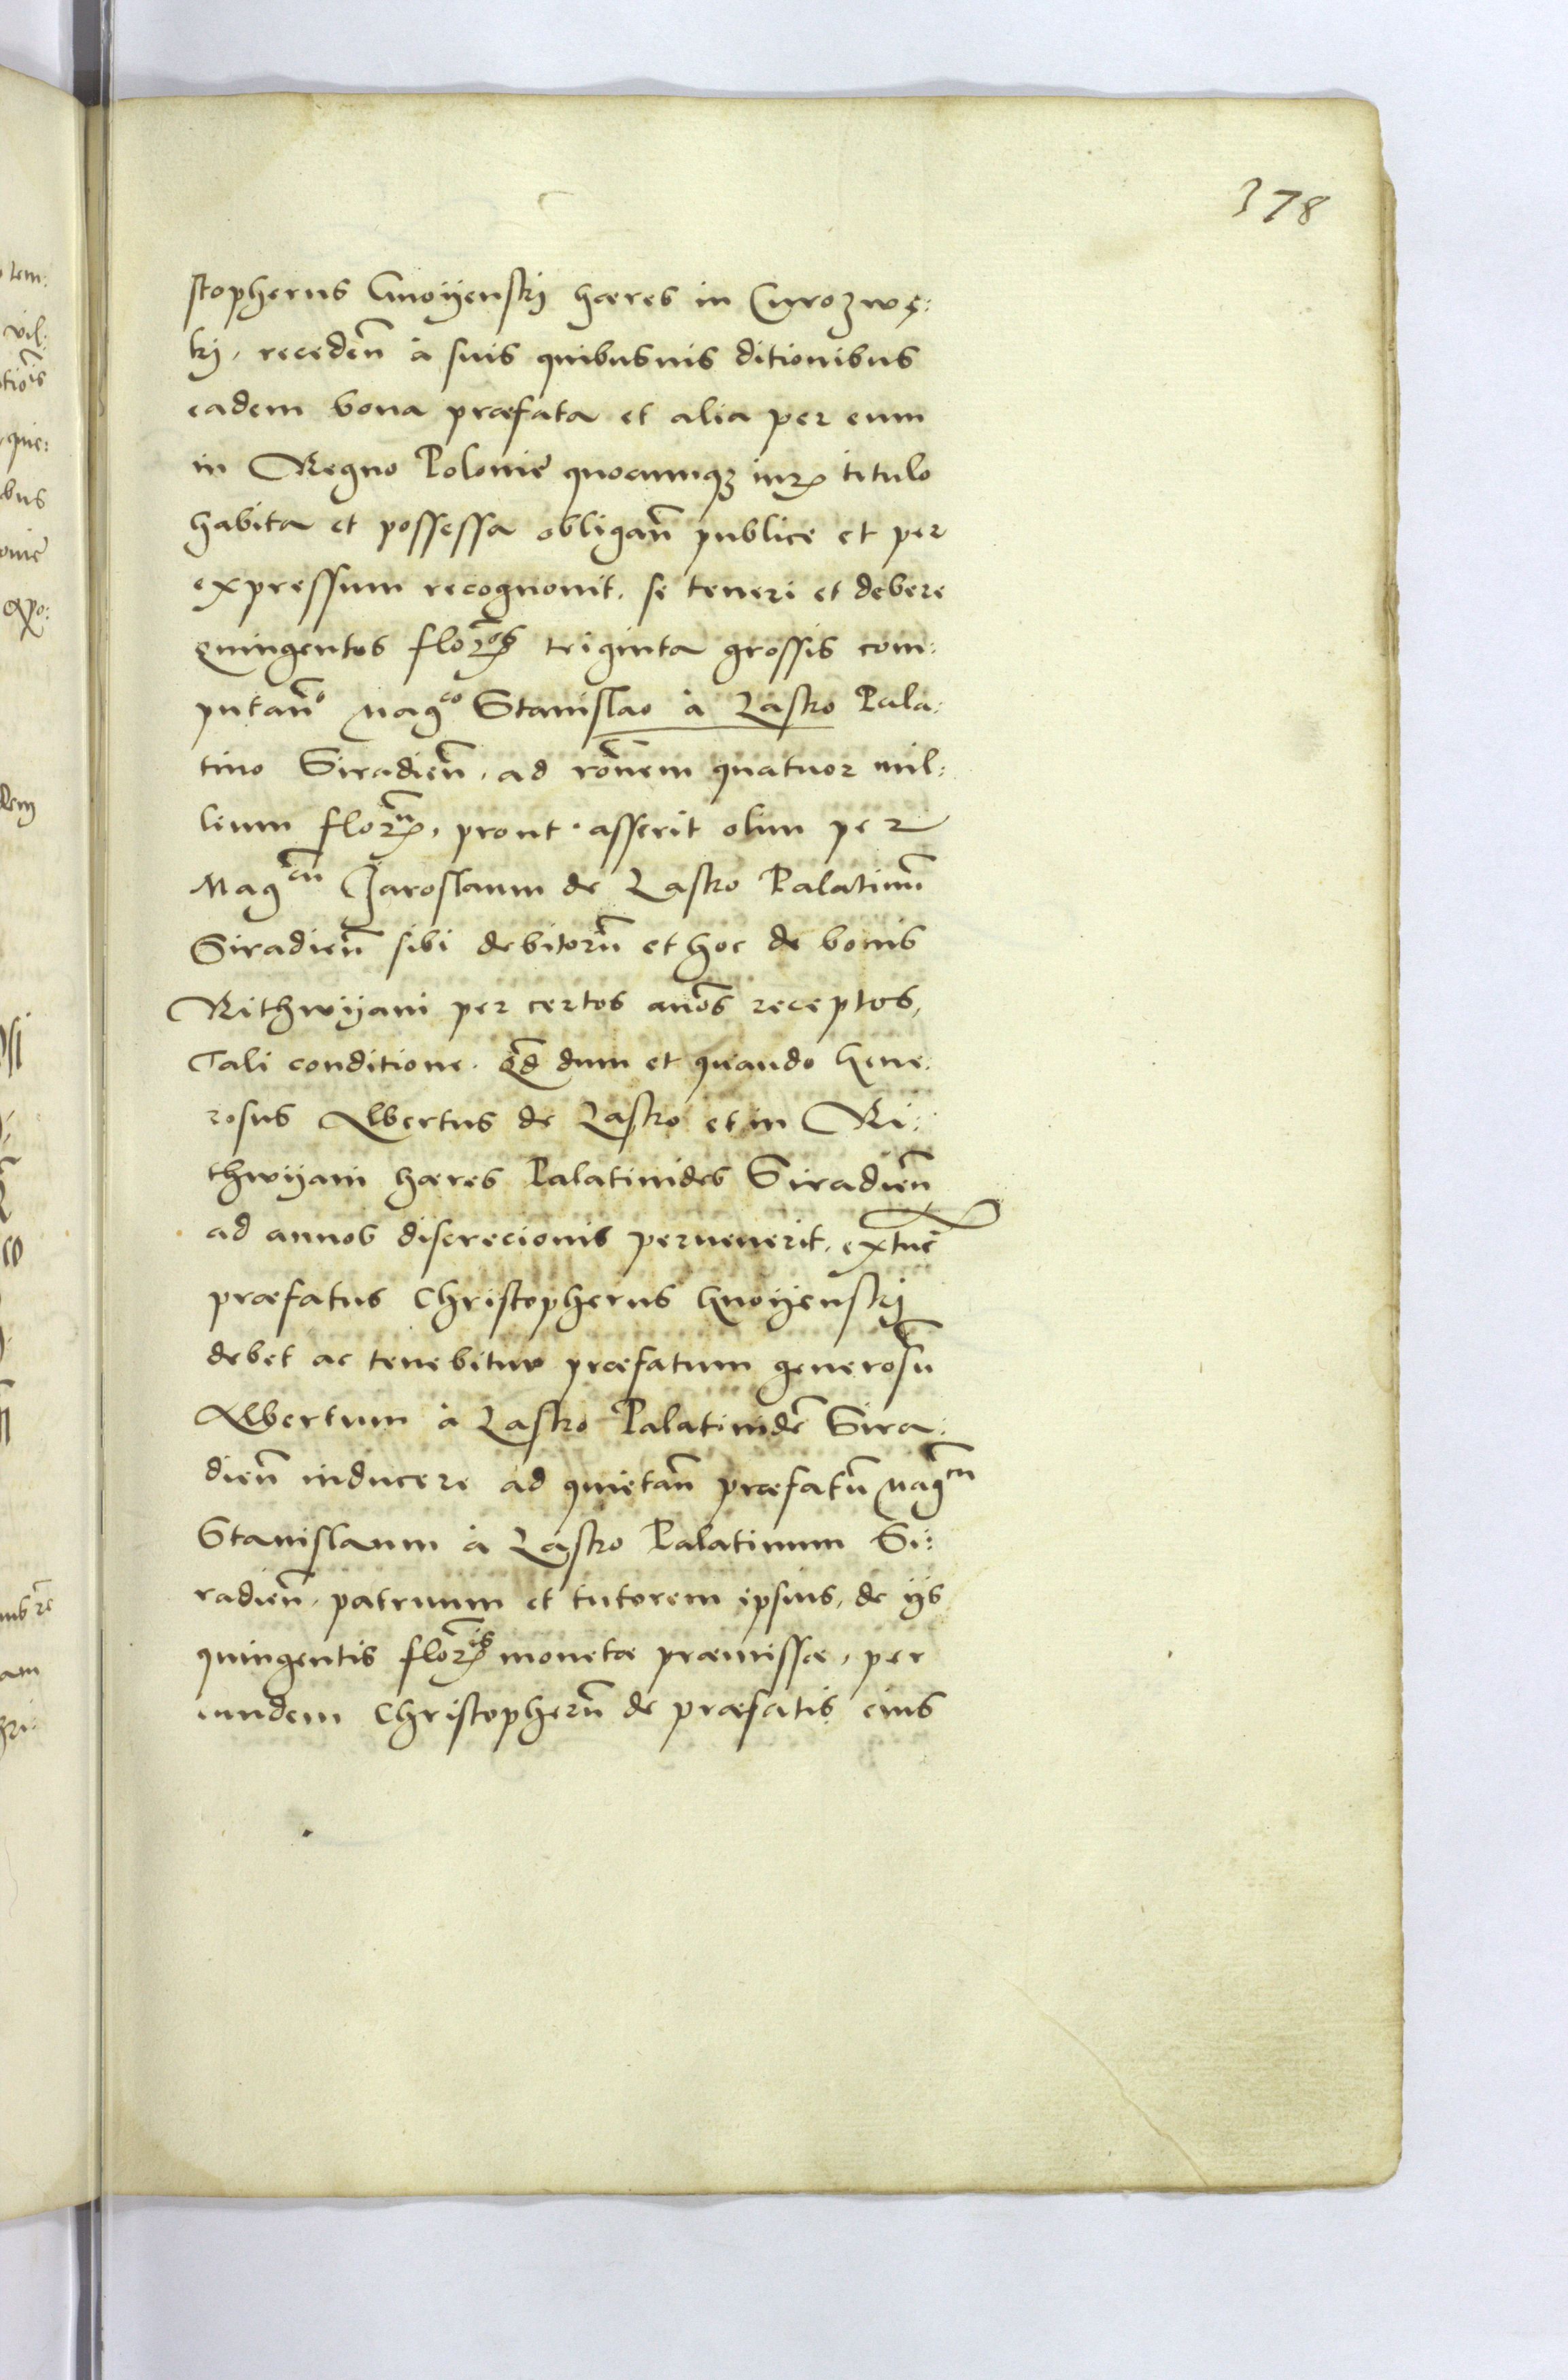 378
stopherus Gnoÿenskÿ hæres in Curozwę:
kÿ, recedeñ à suis quibusuis ditionibus
eadem bona præfata et alia per eum
in Regno Polonię quocumq₃ iur titulo
habita et possessa obligañ publice et per
expressum recognouit, se teneri et debere
quingentos florōs triginta grossis com:
putañº Mag^co Stanislao à Lasko Pala:
tino Siradieñ, ad rōnem quatuor mil:
lium flor^m, prout asserit olim per
Mag^cũ Jaroslaum de Lasko Palatinũ
Siradieñ sibi debitorũ et hoc de bonis
Rithwÿani per certos año̅s receptos,
Tali conditione. Qd̃ dum et quando Gene:
rosus Albertus de Lasko et in Ri:
thwÿani hæres Palatinides Siradieñ
ad annos discrecionis peruenerit, extūc
præfatus Christopherus Gnoÿenskÿ
debet ac tenebitur præfatum generosũ
Albertum à Lasko Palatinidē Sira:
dieñ inducere ad quietañ præfatũ Mag^cũ
Stanislaum à Lasko Palatinum Si:
radieñ, patruum et tutorem ipsius, de ijs
quingentis flor^is monetæ præmissæ, per
eundem Christopherũ de præfatis eius